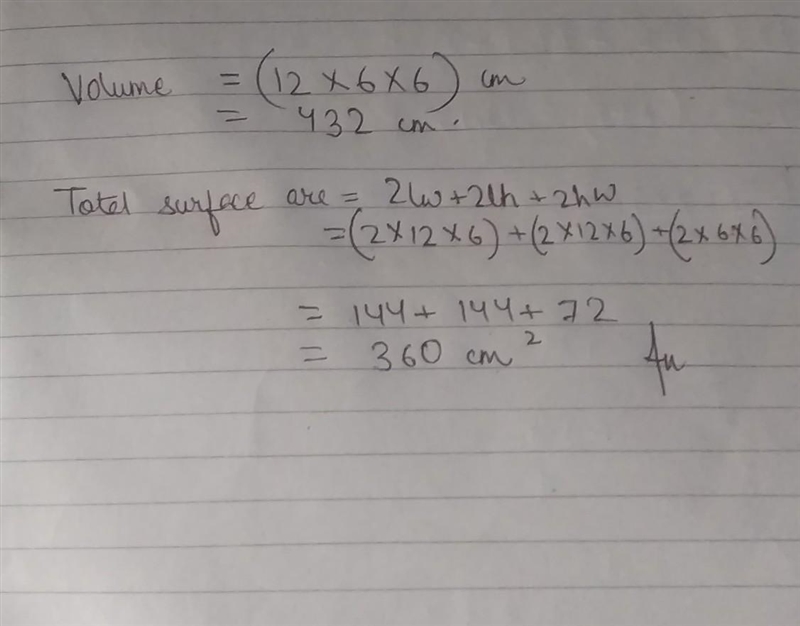 Volume = (12 × 6 × 6) cm
= 432 cm.
Total surface are = 2lw + 2lh + 2hw
= (2 × 12 × 6) + (2 × 12 × 6) + (2 × 6 × 6)
= 144 + 144 + 72
= 360 cm²